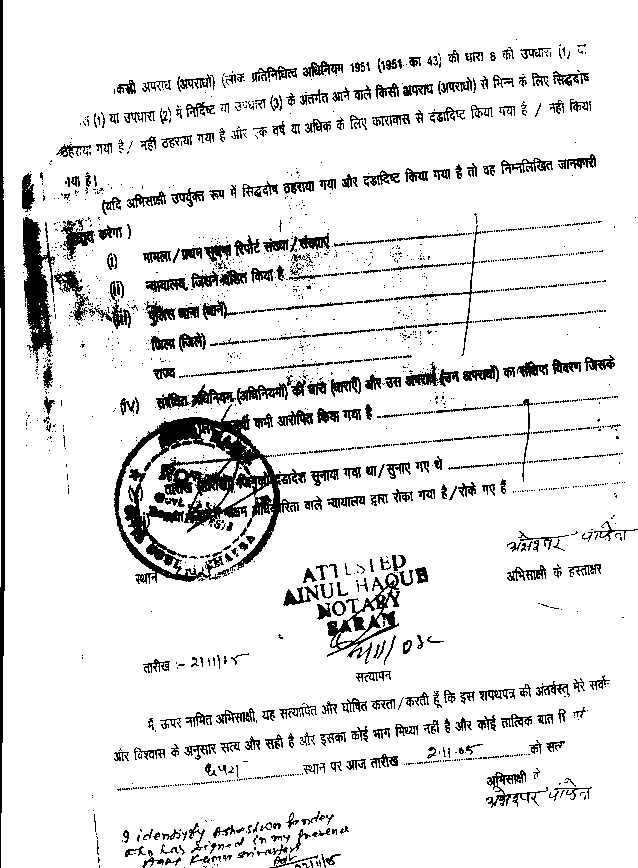 किसी अपराध (अपराधों) (लोक प्रतिनिधित्व अधिनियम 1951 (1951 का 43) की धारा 8 की उपधारा (1) या
(1) या उपधारा (2) में निर्दिष्ट या उपधारा (3) के अंतर्गत आने वाले किसी अपराध (अपराधों) से भिन्न के लिए सिद्धदोष
ठहराया गया है / नहीं ठहराया गया है और एक वर्ष या अधिक के लिए कारावास से दंडादिष्ट किया गया है / नहीं किया
गया है।
(यदि अभिसाक्षी उपर्युक्त रूप में सिद्धदोष ठहराया गया और दंडादिष्ट किया गया है तो वह निम्नलिखित जानकारी
करेगा )
(i) मामला / प्रथम सूचना रिपोर्ट संख्या / संख्याएं
(ii) न्यायालय, जिसने दंडित किया है
(iii) पुलिस थाना (थाने)
जिला (जिले)
राज्य
(iv) संबंधित अधिनियम (अधिनियमों) की धारा (धाराएँ) और उस अपराध (उन अपराधों) का संक्षिप्त विवरण जिसके
कभी आरोपित किया गया है
तारीख दंडादेश सुनाया गया था / सुनाए गए थे
अधिकारिता वाले न्यायालय द्वारा रोका गया है / रोके गए हैं
स्थान
अभिसाक्षी के हस्ताक्षर
ATTESTED
AINUL HAQUE
NOTARY
SARAN
तारीख :- 2/11/05
सत्यापन
मैं, ऊपर नामित अभिसाक्षी, यह सत्यापित और घोषित करता / करती हूँ कि इस शपथपत्र की अंतर्वस्तु मेरे सर्वो
और विश्वास के अनुसार सत्य और सही है और इसका कोई भाग मिथ्या नहीं है और कोई तात्विक बात
स्थान पर आज तारीख 2.11.05 को सत्य
अभिसाक्षी
I identify Pandey
who has signed in my presence